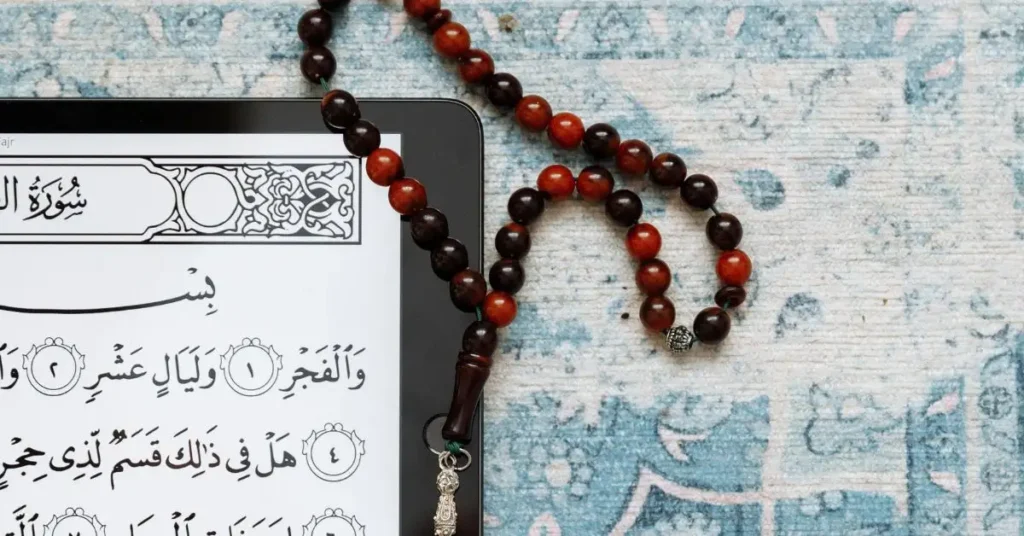 ajr
سُورَةُ ال
بِسْـ
وَٱلۡفَجۡرِ ١ وَلَيَالٍ عَشۡرٖ ٢ وَٱ
٤ هَلۡ فِي ذَٰلِكَ قَسَمٞ لِّذِي حِجۡرٍ